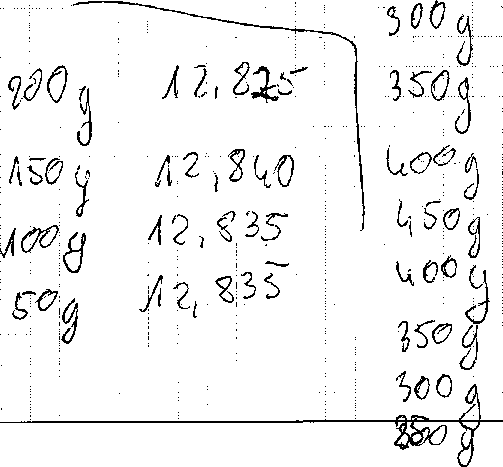 200g 12,825
150g 12,840
100g 12,835
50g 12,835
300g
350g
400g
450g
400g
350g
300g